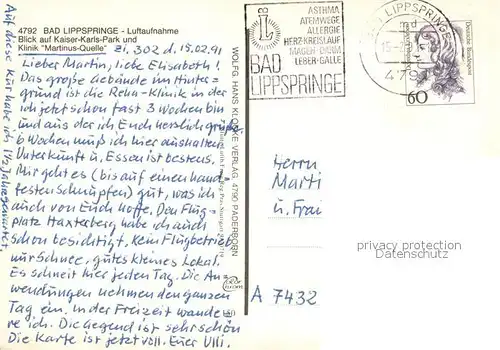 4792 BAD LIPPSPRINGE - Luftaufnahme
Blick auf Kaiser-Karls-Park und
Klinik "Martinus-Quelle"
Zi. 302 d. 15.02.91
Lieber Martin, liebe Elisabeth!
Das große Gebäude im Hinter=
grund ist die Reha-Klinik in der
ich jetzt schon fast 3 Wochen bin
und aus der ich Euch herzlich grüße.
6 Wochen muß ich hier aushalten.
Unterkunft u. Essen ist bestens.
Mir geht es (bis auf einen hand=
festen Schnupfen) gut, was ich
auch von Euch hoffe. Den Flug-
platz Haxterberg habe ich auch
schon besichtigt. Kein Flugbetrieb
nur Schnee, gutes kleines Lokal.
Es schneit hier jeden Tag. Die An
wendungen nehmen den ganzen
Tag ein. In der Freizeit wande
re ich. Die Gegend ist sehr schön
Die Karte ist jetzt voll. Euer Ulli.
Auf diese Kur habe ich 1 1/2 Jahre gewartet.
WOLFG. HANS KLOCKE VERLAG, 4790 PADERBORN
ASTHMA
ATEMWEGE
ALLERGIE
HERZ-KREISLAUF
MAGEN-DARM
LEBER-GALLE
BAD
LIPPSPRINGE
BAD LIPPSPRINGE
md
4792
Deutsche Bundespost
60
Herrn
Marti
u. Frau
A 7432
privacy protection